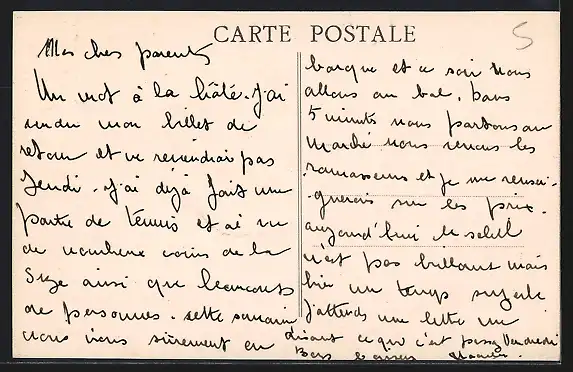 CARTE POSTALE
5
Mes chers parents
Un mot à la hâte. J'ai
rendu mon billet de
retour et ne reviendrai pas
Jeudi. J'ai déjà fait une
partie de tennis et ai vu
de nombreux coins de la
ainsi que beaucoup
de personnes. cette semaine
nous irons sûrement en
barque et ce soir nous
allons au bal. Dans
5 minutes nous partons au
marché nous
ramasseurs et je me rensei-
gnerais sur les prix.
aujourd'hui le soleil
n'est pas brillant mais
hier un temps superbe
J'attends une lettre me
disant ce que c'est passé Vendredi
Bons baisers